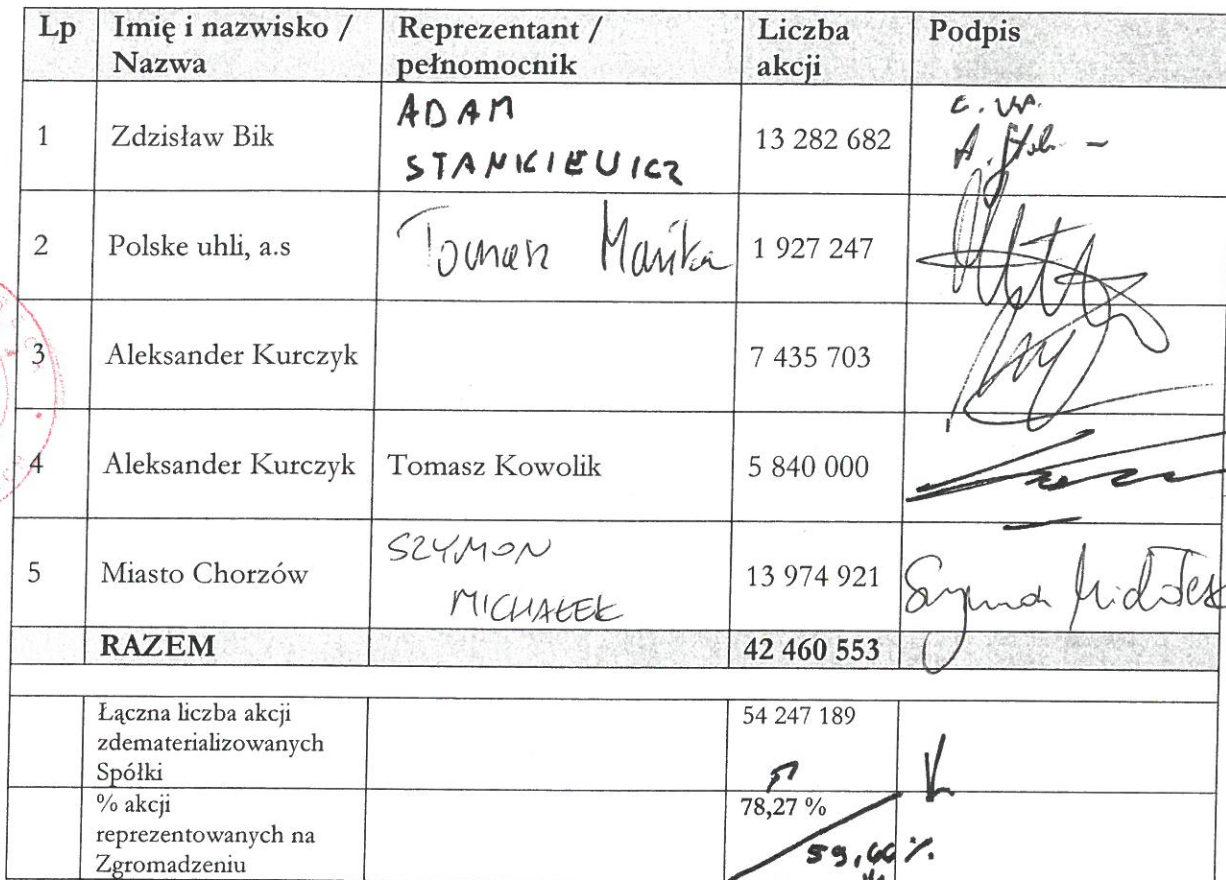 Lp Imię i nazwisko / Nazwa Reprezentant / pełnomocnik Liczba akcji Podpis
1 Zdzisław Bik ADAM STANKIEWICZ 13 282 682
2 Polske uhli, a.s Tomasz 1 927 247
3 Aleksander Kurczyk 7 435 703
4 Aleksander Kurczyk Tomasz Kowolik 5 840 000
5 Miasto Chorzów SZYMON MICHAŁEK 13 974 921 Szymon Michałek
RAZEM 42 460 553
Łączna liczba akcji zdematerializowanych Spółki 54 247 189
% akcji reprezentowanych na Zgromadzeniu 78,27 %
59,66 %